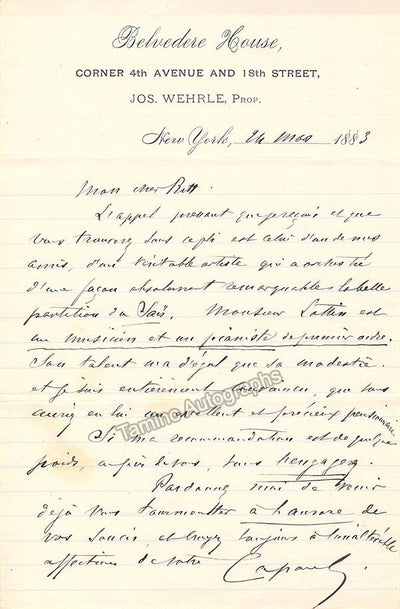 Belvedere House,
CORNER 4th AVENUE AND 18th STREET,
JOS. WEHRLE, PROP.
New York, 24 mars 1883
Mon cher Ritt.
L'appel pressant que reçois et que
vous trouverez sous ce pli est celui d'un de mes
amis, d'un véritable artiste qui a orchestré
d'une façon absolument remarquable la belle
partition de Saïs. Monsieur Lottin est
un musicien et un pianiste de premier ordre.
Son talent n'a d'égal que sa modestie.
et je suis entièrement convaincu, que vous
aurez en lui un excellent et précieux pensionnaire
Si ma recommandation est de quelque
poids, auprès de vous, vous l'engagez.
Pardonnez moi de venir
déjà vous tourmenter à l'aurore de
vos soucis et croyez toujours à l'inaltérable
affection de votre Capoul.
Tamino Autographs